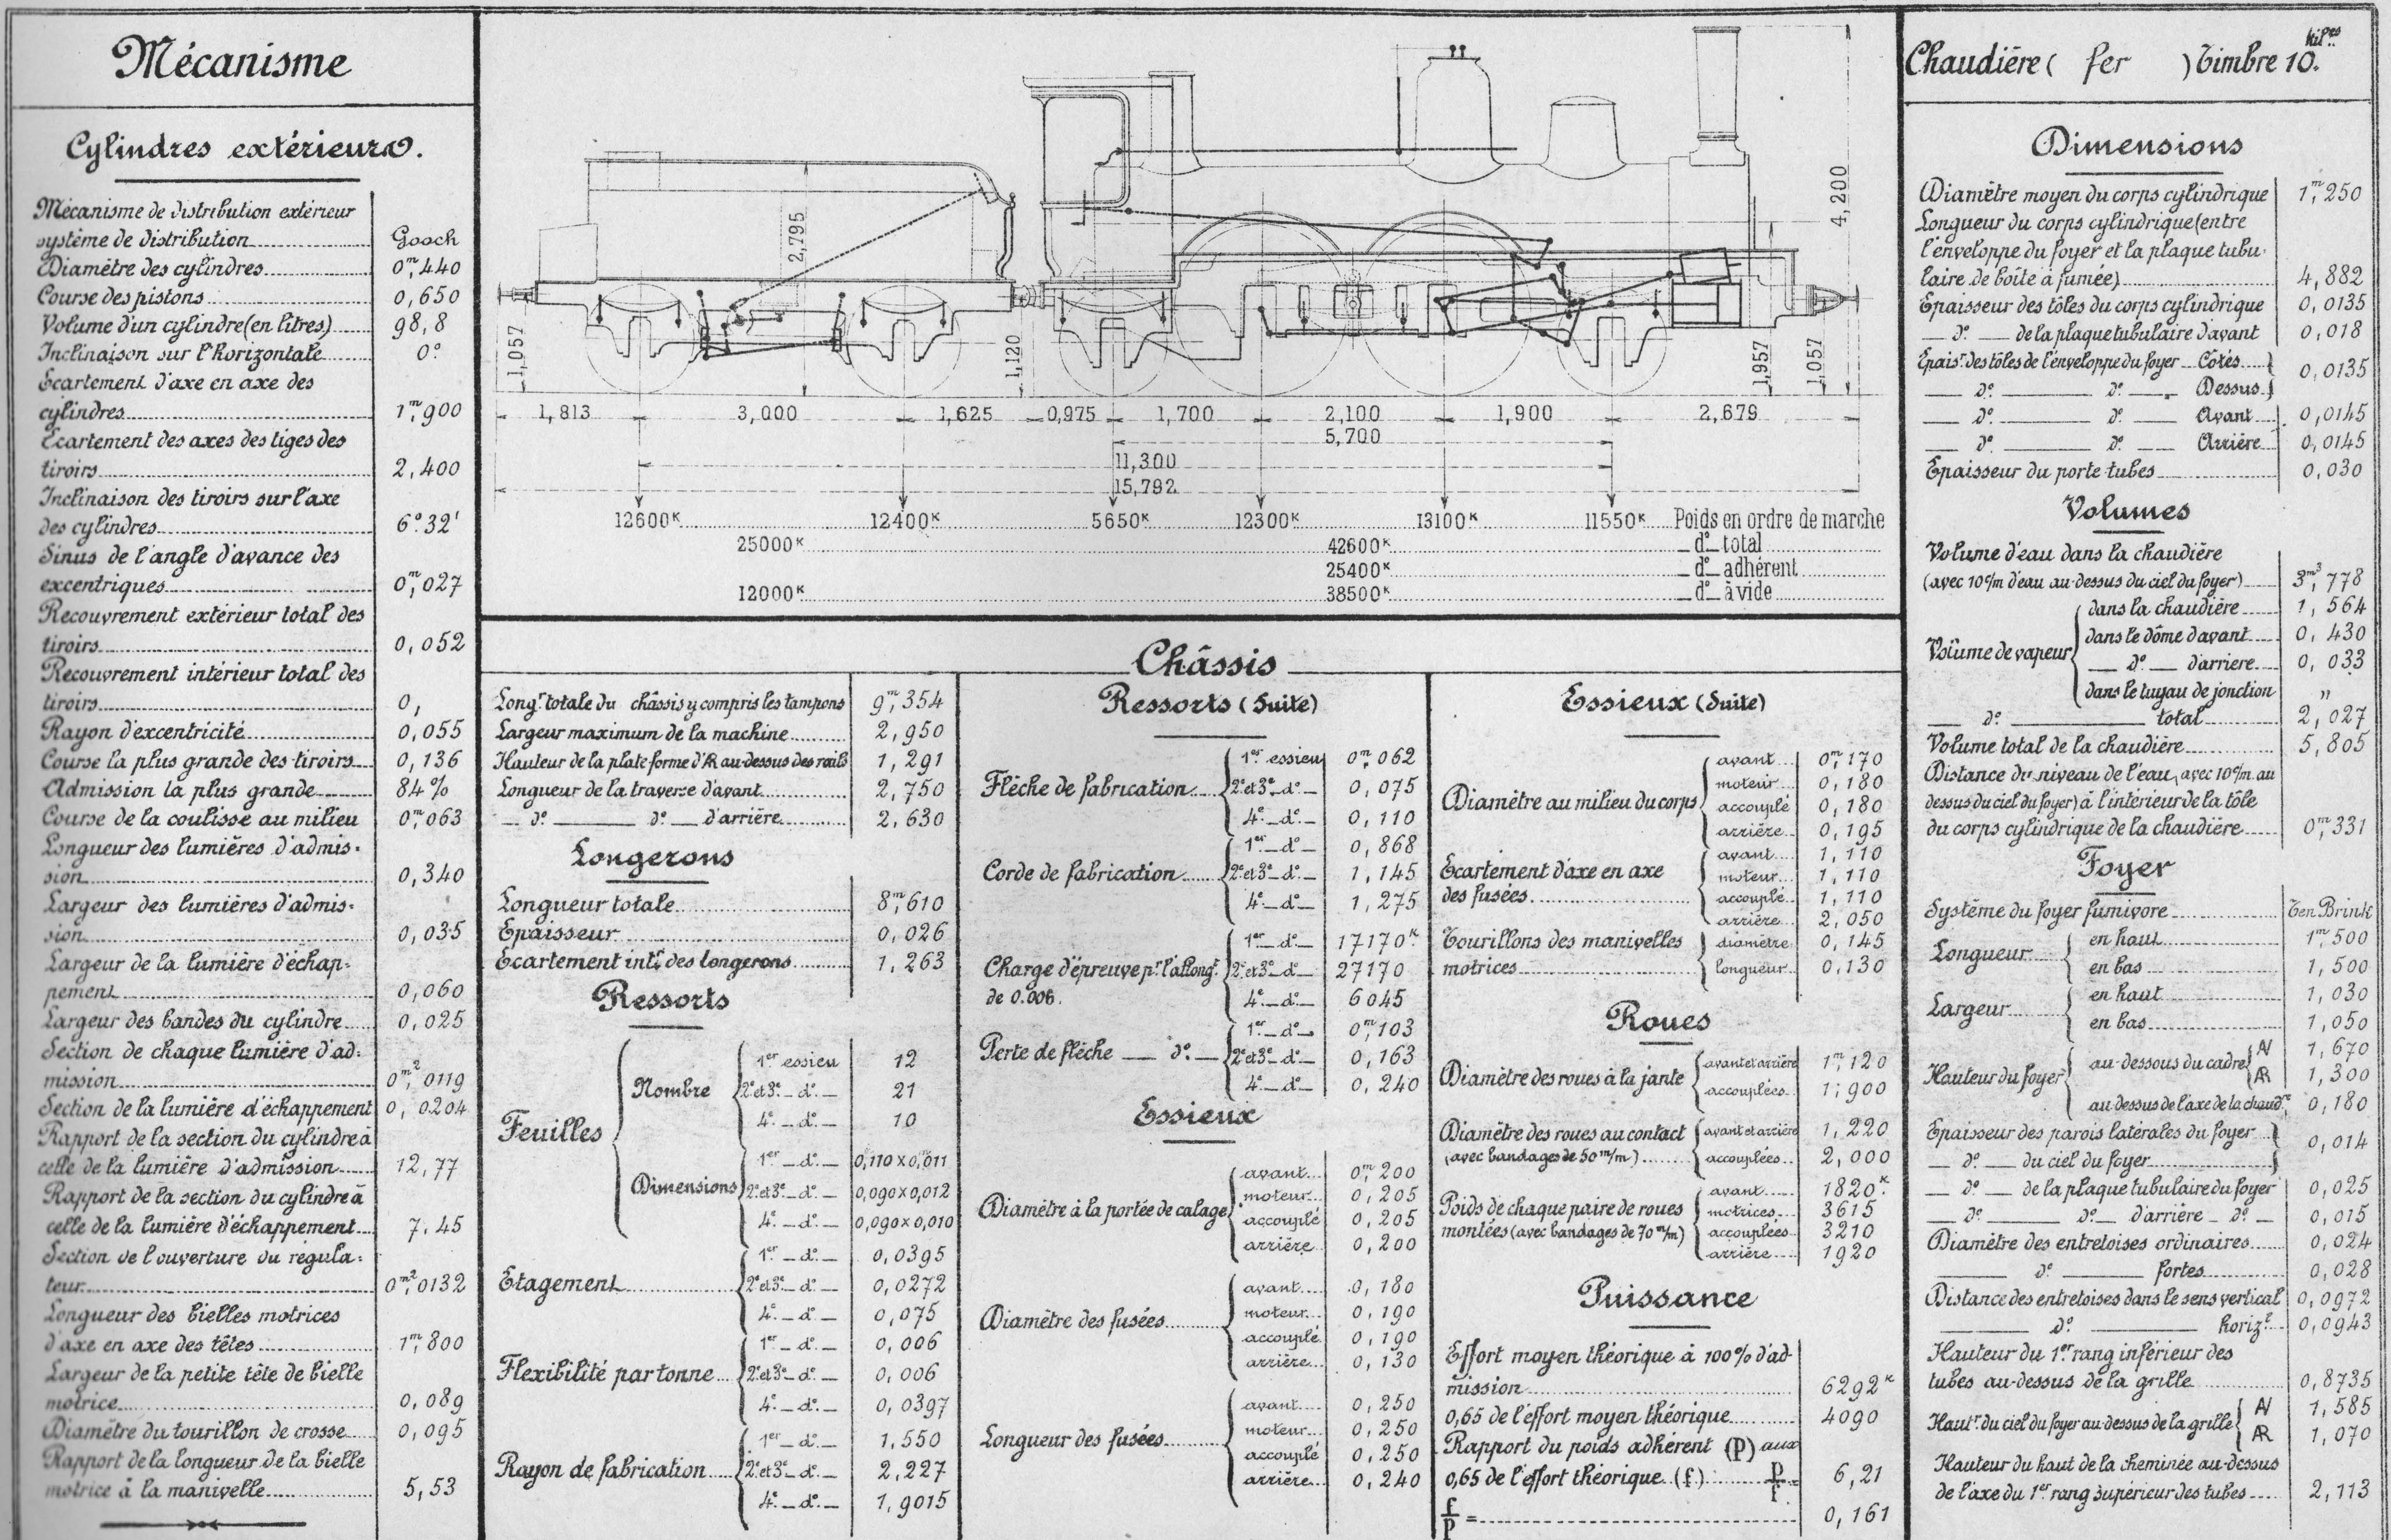 Mécanisme
Cylindres extérieurs.
Mécanisme de distribution extérieur
système de distribution Gooch
Diamètre des cylindres 0,m440
Course des pistons 0,650
Volume d'un cylindre (en litres) 98,8
Inclinaison sur l'horizontale 0°
Ecartement d'axe en axe des
cylindres 1,m900
Ecartement des axes des tiges des
tiroirs 2,400
Inclinaison des tiroirs sur l'axe
des cylindres 6°32'
Sinus de l'angle d'avance des
excentriques 0,m027
Recouvrement extérieur total des
tiroirs 0,052
Recouvrement intérieur total des
tiroirs 0,
Rayon d'excentricité 0,055
Course la plus grande des tiroirs 0,136
Admission la plus grande 84%
Course de la coulisse au milieu 0,m063
Longueur des lumières d'admis-
sion 0,340
Largeur des lumières d'admis-
sion 0,035
Largeur de la lumière d'échap-
pement 0,060
Largeur des bandes du cylindre 0,025
Section de chaque lumière d'ad-
mission 0,m²0119
Section de la lumière d'échappement 0,0204
Rapport de la section du cylindre à
celle de la lumière d'admission 12,77
Rapport de la section du cylindre à
celle de la lumière d'échappement 7.45
Section de l'ouverture du régula-
teur 0,m²0132
Longueur des bielles motrices
d'axe en axe des têtes 1,m800
Largeur de la petite tête de bielle
motrice 0,089
Diamètre du tourillon de crosse 0,095
Rapport de la longueur de la bielle
motrice à la manivelle 5,53
2,795
4,200
1,057
1,120
1,957
1,057
1,813 3,000 1,625 0,975 1,700 2,100 1,900 2,679
5,700
11,300
15,792
12600K 12400K 5650K 12300K 13100K 11550K Poids en ordre de marche
25000K 42600K d° total
25400K d° adhérent
12000K 38500K d° à vide
Châssis
Longr totale du châssis y compris les tampons 9,m354
Largeur maximum de la machine 2,950
Hauteur de la plate forme d'AR au-dessus des rails 1,291
Longueur de la traverse d'avant 2,750
d° d° d'arrière 2,630
Longerons
Longueur totale 8,m610
Epaisseur 0,026
Ecartement intr des longerons 1,263
Ressorts
Feuilles
Nombre
1er essieu 12
2e et 3e d° 21
4e d° 10
Dimensions
1er d° 0,110 x 0,m011
2e et 3e d° 0,090 x 0,012
4e d° 0,090 x 0,010
Etagement
1er d° 0,0395
2e et 3e d° 0,0272
4e d° 0,075
Flexibilité par tonne
1er d° 0,006
2e et 3e d° 0,006
4e d° 0,0397
Rayon de fabrication
1er d° 1,550
2e et 3e d° 2,227
4e d° 1,9015
Ressorts (Suite)
Flèche de fabrication
1er essieu 0,m062
2e et 3e d° 0,075
4e d° 0,110
Corde de fabrication
1er d° 0,868
2e et 3e d° 1,145
4e d° 1,275
Charge d'épreuve pr l'allongt
de 0.006.
1er d° 17170K
2e et 3e d° 27170
4e d° 6045
Perte de flèche d°
1er d° 0,m103
2e et 3e d° 0,163
4e d° 0,240
Essieux
Diamètre à la portée de calage
avant 0,m200
moteur 0,205
accouplé 0,205
arrière 0,200
Diamètre des fusées
avant 0,180
moteur 0,190
accouplé 0,190
arrière 0,130
Longueur des fusées
avant 0,250
moteur 0,250
accouplé 0,250
arrière 0,240
Essieux (Suite)
Diamètre au milieu du corps
avant 0,m170
moteur 0,180
accouplé 0,180
arrière 0,195
Ecartement d'axe en axe
des fusées
avant 1,110
moteur 1,110
accouplé 1,110
arrière 2,050
Tourillons des manivelles
motrices
diamètre 0,145
longueur 0.130
Roues
Diamètre des roues à la jante
avant et arrière 1,m120
accouplées 1,900
Diamètre des roues au contact
(avec bandages de 50 m/m)
avant et arrière 1,220
accouplées 2,000
Poids de chaque paire de roues
montées (avec bandages de 70 m/m)
avant 1820K
motrices 3615
accouplées 3210
arrière 1920
Puissance
Effort moyen théorique à 100% d'ad-
mission 6292K
0,65 de l'effort moyen théorique 4090
Rapport du poids adhérent (P) aux
0,65 de l'effort théorique (f) P/f = 6,21
f/P = 0,161
Chaudière ( fer ) Timbre 10. kilos
Dimensions
Diamètre moyen du corps cylindrique 1,m250
Longueur du corps cylindrique (entre
l'enveloppe du foyer et la plaque tubu-
laire de boîte à fumée) 4,882
Epaisseur des tôles du corps cylindrique 0,0135
d° de la plaque tubulaire d'avant 0,018
Epaisr des tôles de l'enveloppe du foyer Côtés
d° d° Dessus 0,0135
d° d° Avant 0,0145
d° d° Arrière 0,0145
Epaisseur du porte tubes 0,030
Volumes
Volume d'eau dans la chaudière
(avec 10 c/m d'eau au-dessus du ciel du foyer) 3,m³778
Volume de vapeur
dans la chaudière 1,564
dans le dôme d'avant 0,430
d° d'arrière 0,033
dans le tuyau de jonction "
d° total 2,027
Volume total de la chaudière 5,805
Distance du niveau de l'eau, avec 10 c/m au
dessus du ciel du foyer) à l'intérieur de la tôle
du corps cylindrique de la chaudière 0,m331
Foyer
Système du foyer fumivore Ten Brink
Longueur
en haut 1,m500
en bas 1,500
Largeur
en haut 1,030
en bas 1,050
Hauteur du foyer
au-dessous du cadre AV 1,670
AR 1,300
au dessus de l'axe de la chaudre 0,180
Epaisseur des parois latérales du foyer
d° du ciel du foyer 0,014
d° de la plaque tubulaire du foyer 0,025
d° d° d'arrière d° 0,015
Diamètre des entretoises ordinaires 0,024
d° fortes 0,028
Distance des entretoises dans le sens vertical 0,0972
d° horizl 0,0943
Hauteur du 1er rang inférieur des
tubes au-dessus de la grille 0,8735
Hautr du ciel du foyer au-dessus de la grille AV 1,585
AR 1,070
Hauteur du haut de la cheminée au-dessus
de l'axe du 1er rang supérieur des tubes 2,113